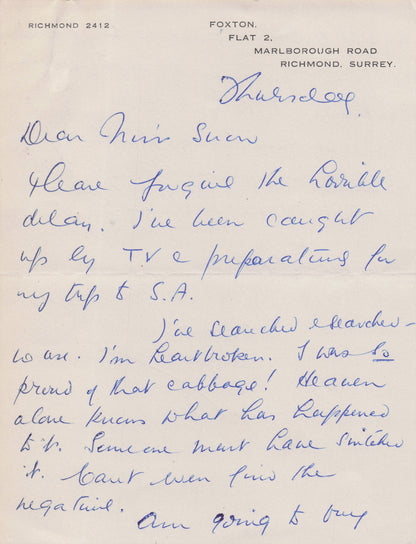 RICHMOND 2412
FOXTON.
FLAT 2,
MARLBOROUGH ROAD
RICHMOND, SURREY.
Thursday.
Dear Miss Snow
Please forgive the horrible
delay. I've been caught
up by T.V & preparations for
my trip to S.A.
I've searched & searched -
no use. I'm heartbroken. I was so
proud of that cabbage! Heaven
alone knows what has happened
to it. Someone must have snitched
it. Can't even find the
negative.
Am going to try